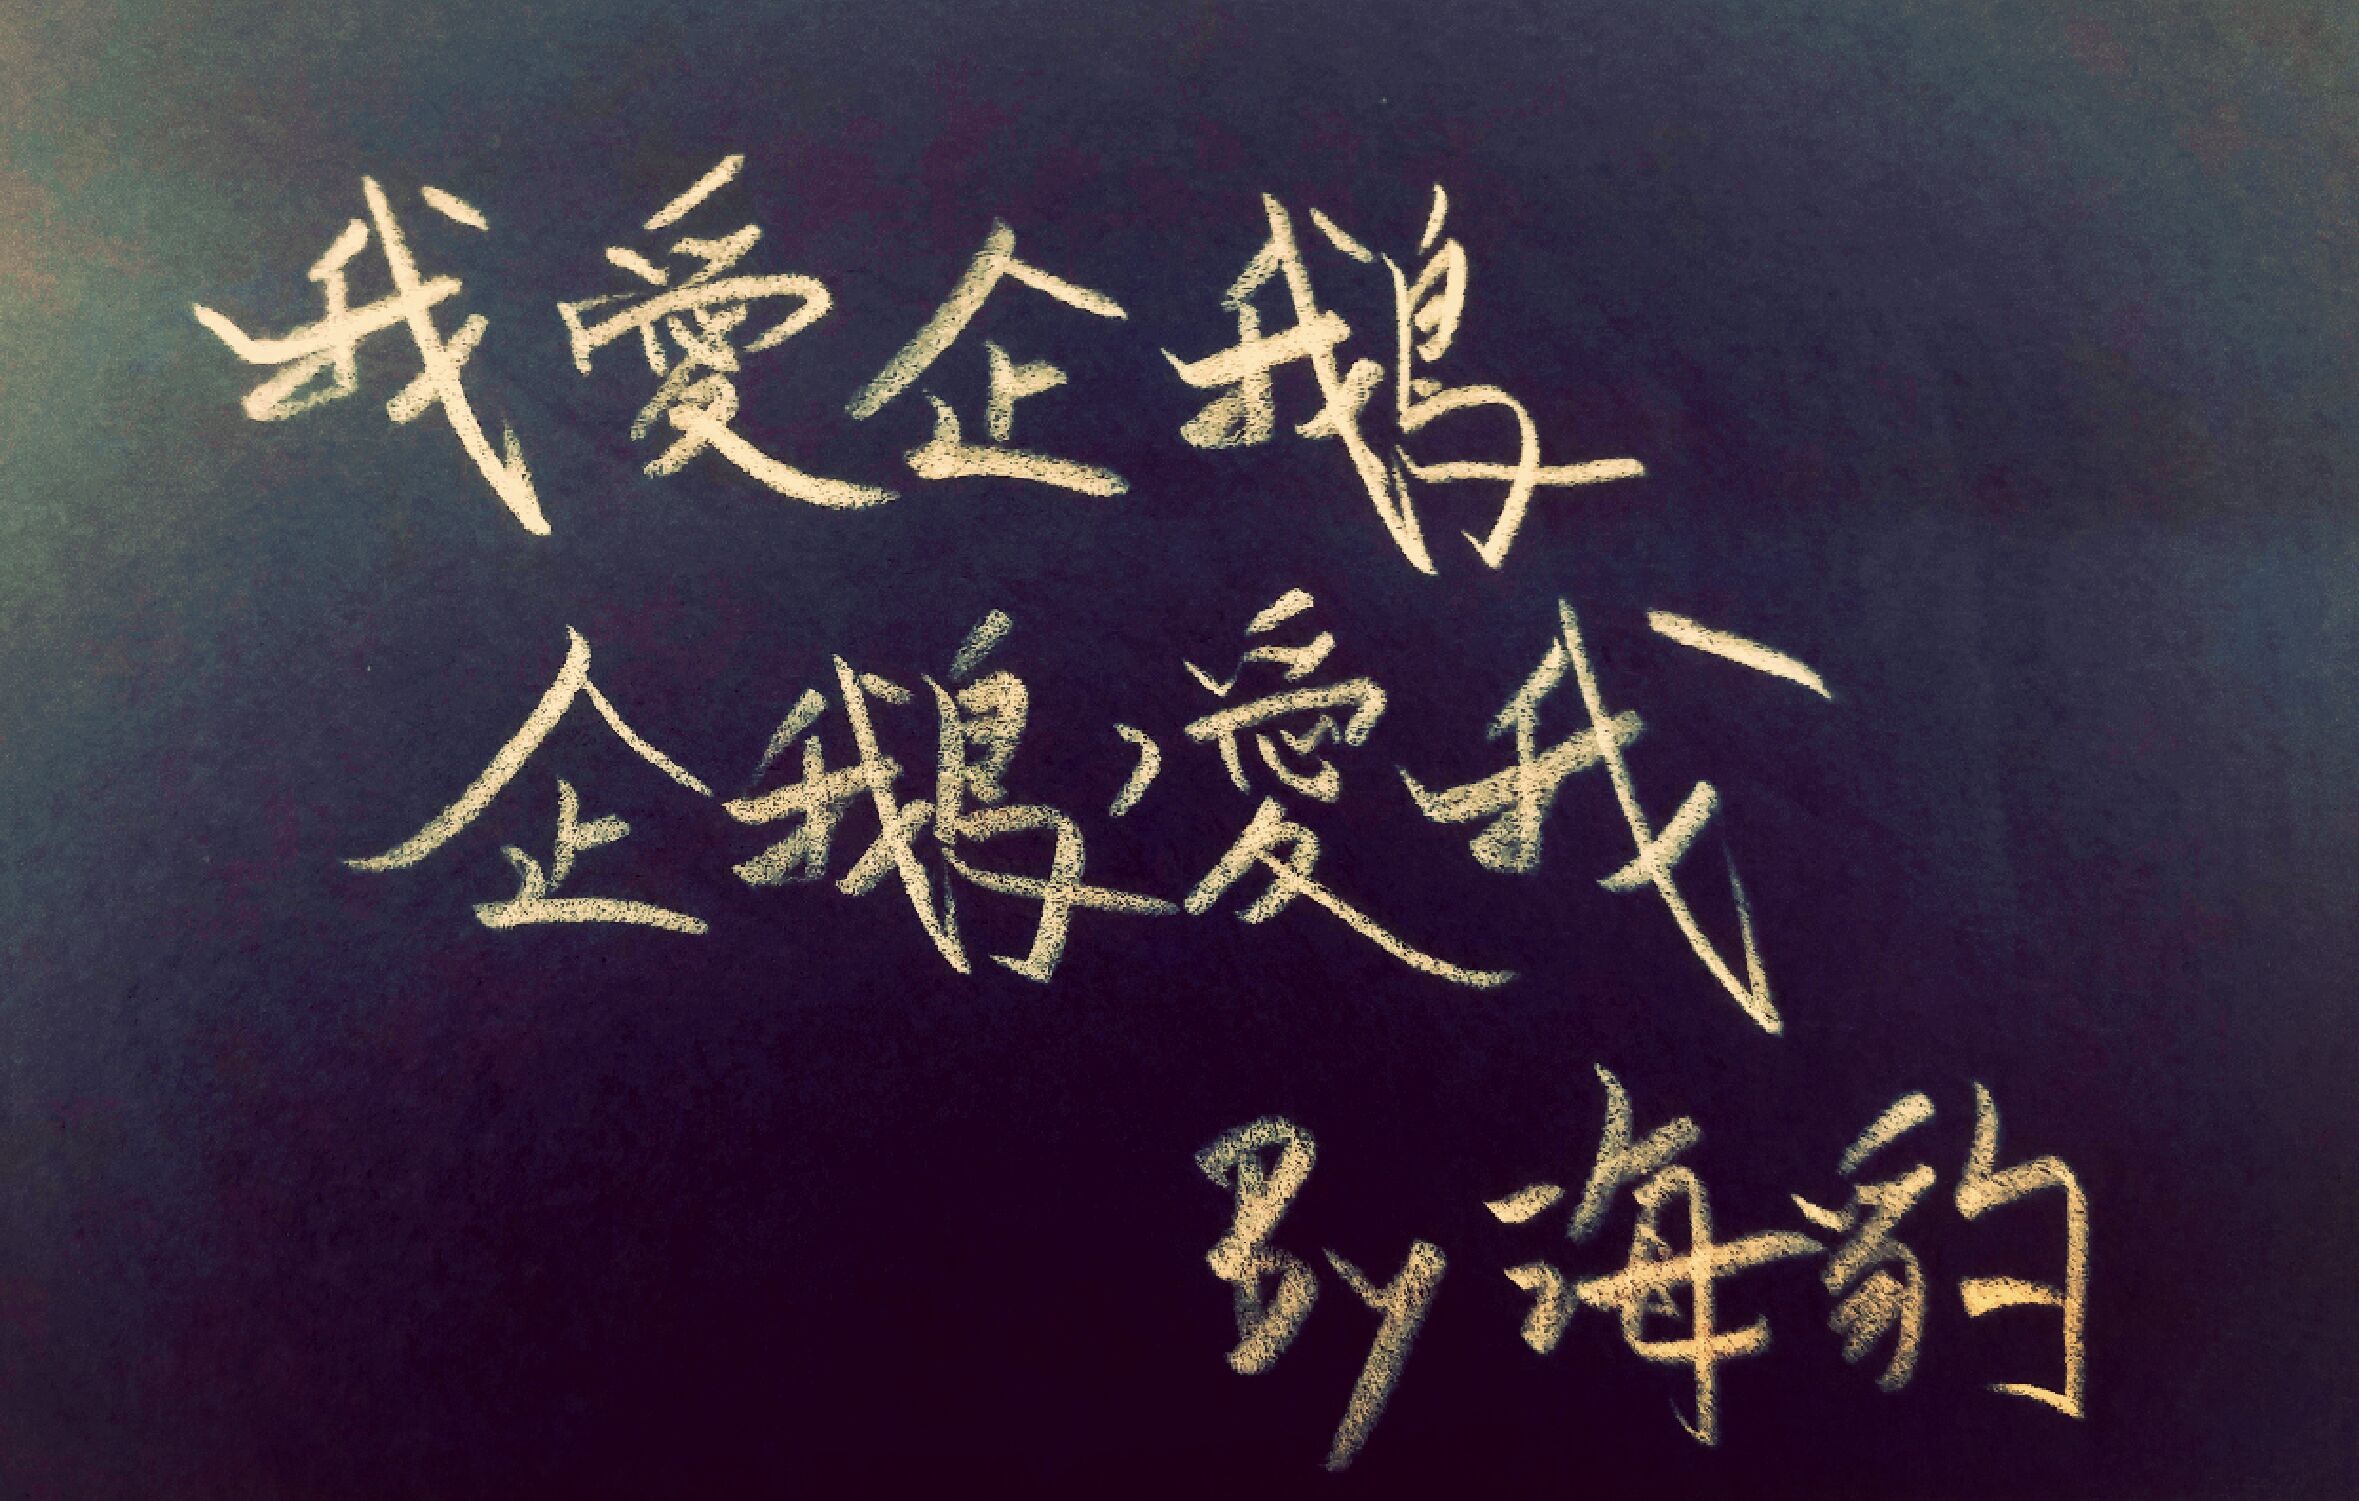 我愛企鵝
企鵝愛我
By海豹